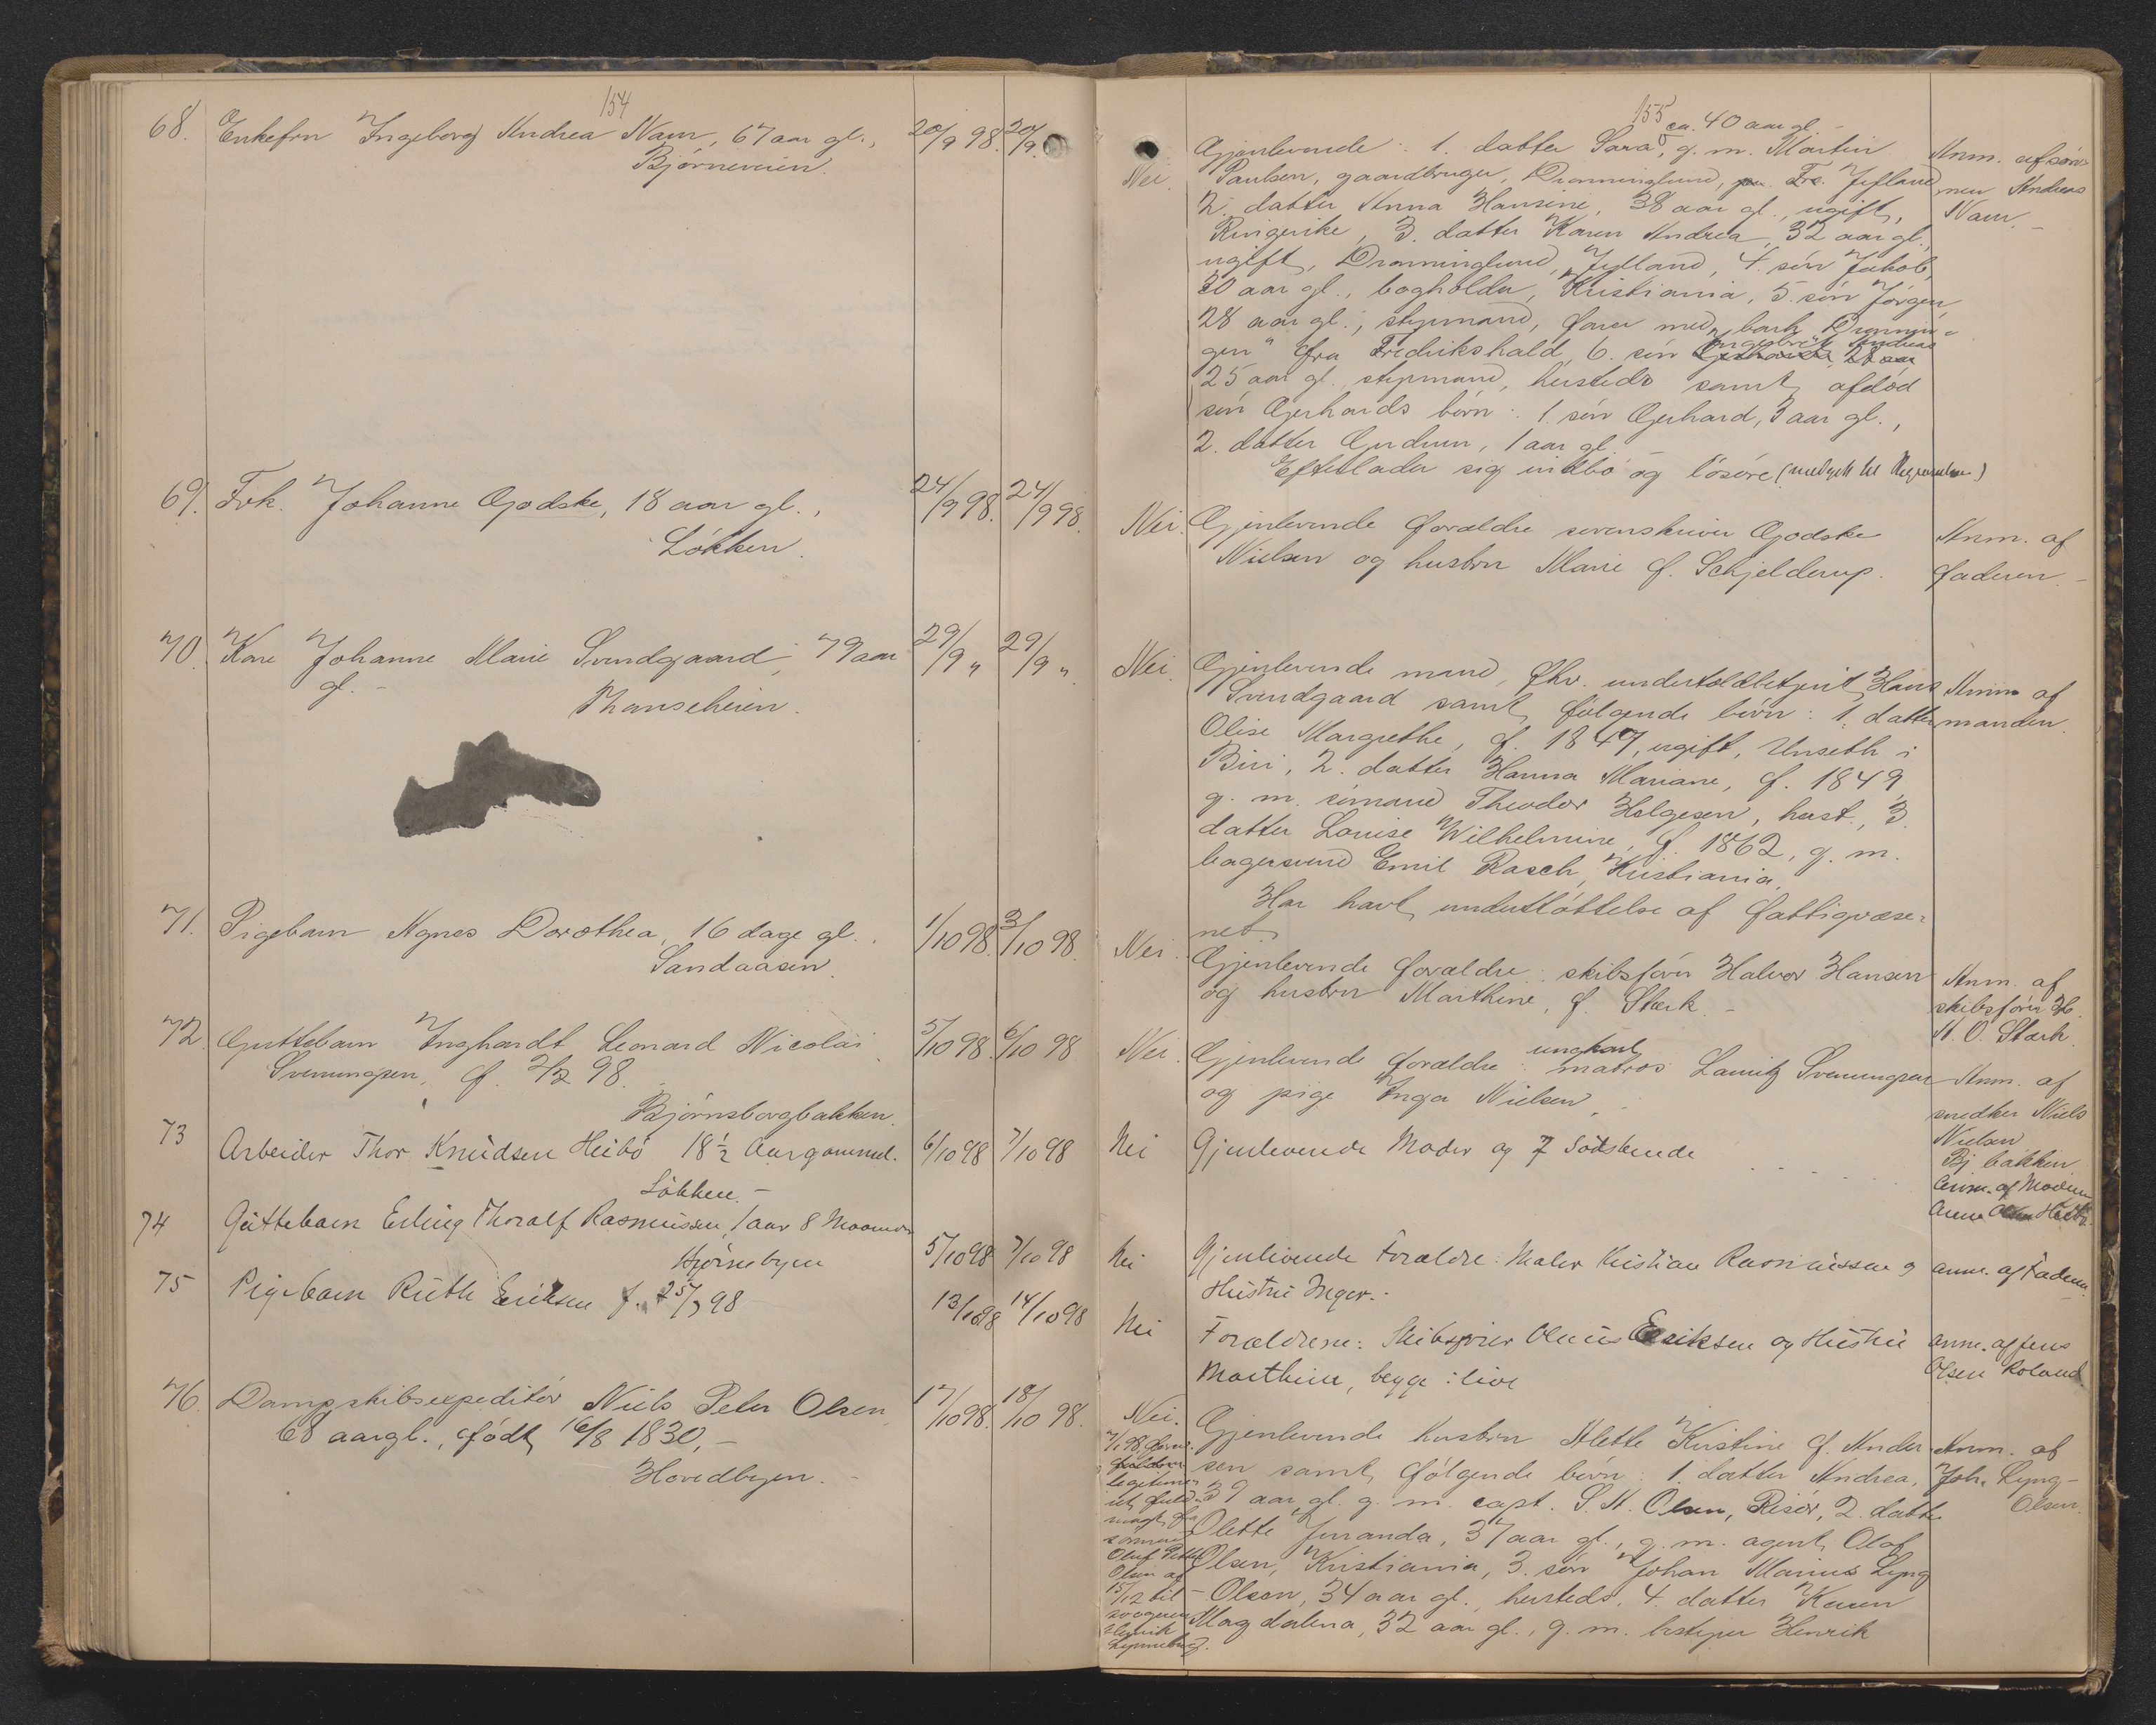 154
68. Enkefru Ingeborg Andrea Naur, 67 aar gl.,
Bjørneveien.
20/9 98. 20/9.
69. Frk. Johanne Godske, 18 aar gl.,
Løkken.
24/9 98. 24/9 98.
70. Kone Johanne Marie Svendgaard, 79 aar
gl. -
29/9 " 29/9 "
71. Pigebarn Agnes Dorothea, 16 dage gl.,
Sandaasen.
1/10 98. 3/10 98.
72. Guttebarn Inghardt Leonard Nicolai
Svenningsen, f. 98.
Bjørnsborgbakken.
5/10 98. 6/10 98.
73 Arbeider Thor Knudsen Heibø 18 1/2 Aar gammel.
Løkken. -
6/10 98 7/10 98
74 Guttebarn Erling Thoralf Rasmussen, 1 aar 8 Maaneder
Bjørnebyen
5/10 98 7/10 98
75 Pigebarn Ruth Eriksen f. 25/ 98
13/10 98 14/10 98
76. Dampskibsexpeditør Niels Peter Olsen,
68 aar gl., født 16/8 1830, -
Hovedbyen. -
17/10 98. 18/10 98.
155
ca. 40 aar gl. -
Gjenlevende: 1. datter Sara, g. m. Martin
Nei. Paulsen, gaardbruger, Dronninglund, Jylland
2. datter Anna Hansine, 38 aar gl., ugift,
Ringerike, 3. datter Karen Andrea, 32 aar gl.,
ugift, Dronninglund, Jylland, 4. søn Jakob,
30 aar gl., bogholder, Kristiania, 5. søn Jørgen,
28 aar gl., styrmand, farer med bark "Dronnin-
gen" fra Fredrikshald, 6. søn Andreas
25 aar gl., styrmand, hersteds samt afdød
søn Gerhards børn: 1. søn Gerhard, 3 aar gl.,
2. datter Gudrun, 1 aar gl.
Efterlader sig indbo og løsøre
Anm. af søn-
nen Andreas
Naur. -
Nei. Gjenlevende forældre sorenskriver Godske
Nielsen og hustru Marie f. Schjelderup.
Anm. af
faderen. -
Nei. Gjenlevende mand, fhv. undertoldbetjent Hans
Svendgaard samt følgende børn: 1. datter
Olise Margrethe, f. 1847, ugift, Unseth i
Biri, 2. datter Hanna Mariane, f. 1849,
g. m. sømand Theodor Helgesen, herst., 3.
datter Louise Wilhelmine, f. 1862, g. m.
bagersvend Emil Rasch, Kristiania.
Har havt understøttelse af fattigvæse-
net.
Anm. af
manden.
Nei. Gjenlevende forældre: skibsfører Halvor Hansen
og hustru Marthine, f. Stærk. -
Anm. af
skibsfører H.
A. O. Stærk.
Nei. Gjenlevende forældre: ungkarl matros Lauritz Svenningsen
og pige Inga Nielsen.
Anm. af
snedker Niels
Nielsen
Bj. bakken.
Nei Gjenlevende Moder og 7 Sødskende
Anm. af Moderen
Anne Heibø.
Nei Gjenlevende Forældre: Maler Kristian Rasmussen og
Hustru Inger. -
anm. af Faderen
Nei Forældrene: Skibsfører Olaus Eriksen og Hustru
Marthine, begge i live
anm. af Jens
Olsen Roland
Nei. Gjenlevende hustru Alette Kirstine f. Ander-
sen samt følgende børn: 1. datter Andrea,
39 aar gl. g. m. capt. S. M. Olsen, Risør, 2. datter
Olette Juranda, 37 aar gl., g. m. agent Olaf
Olsen, Kristiania, 3. søn Johan Marius Lyng
- Olsen, 34 aar gl., hersteds, 4. datter Karen
Magdalena, 32 aar gl., g. m. bestyrer Henrik
Anm. af
Joh. Lyng-
Olsen.
legitime-
ret fuld-
magt fra
sønnen
Oluf Petter
Olsen af
15/12 til
Henrik